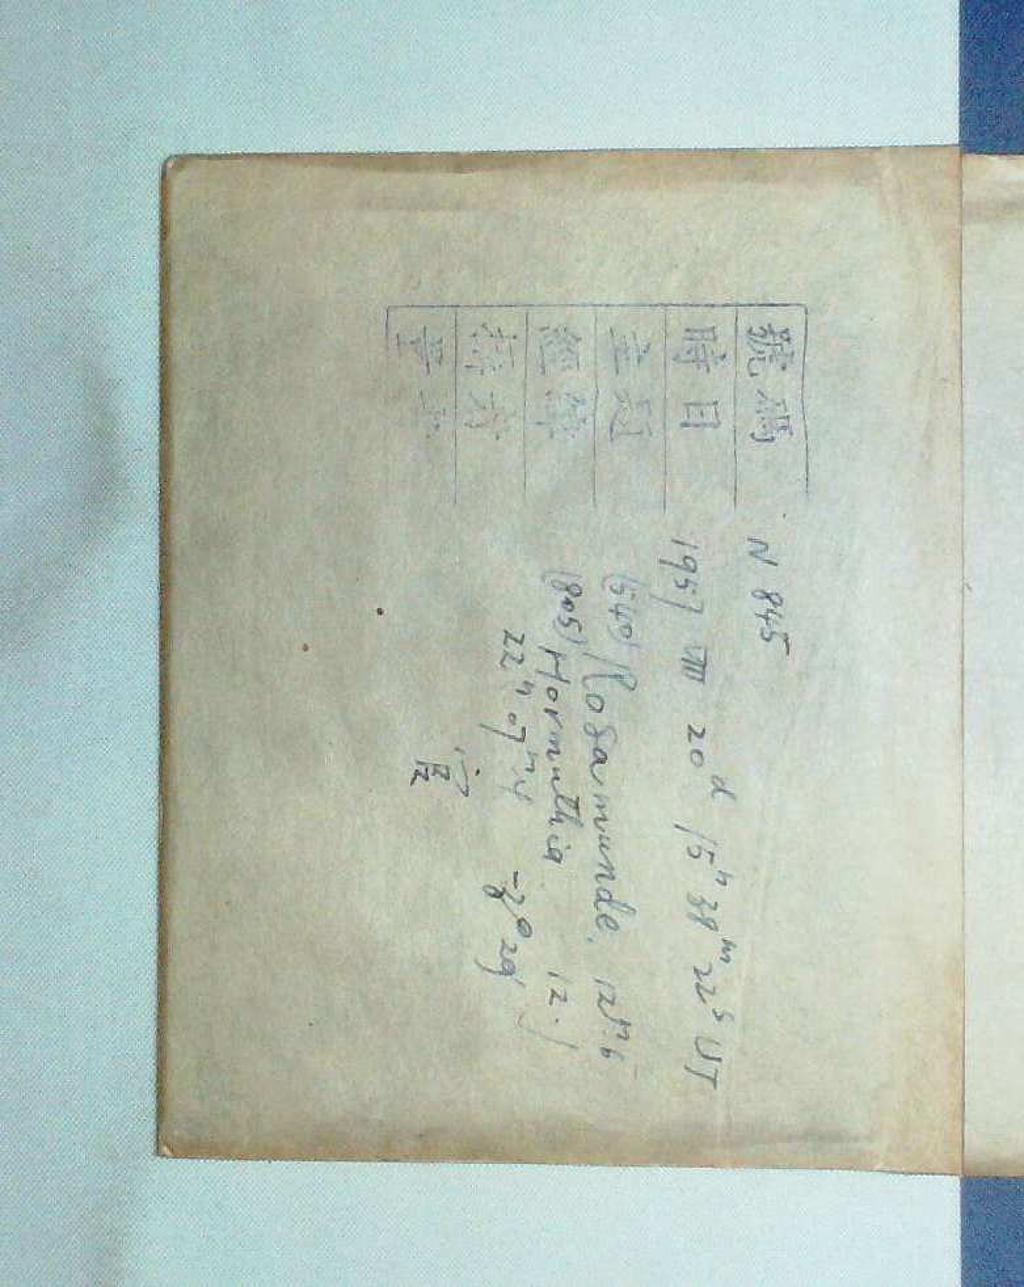 號碼 N 845
時日 1957 VIII 20ᵈ 15ʰ 38ᵐ 22ˢ UT
(540) Rosamunde. 12ᵐ.6
經緯 (805) Hormuthia 12.1
22ʰ 07ᵐ.4 -3° 29'